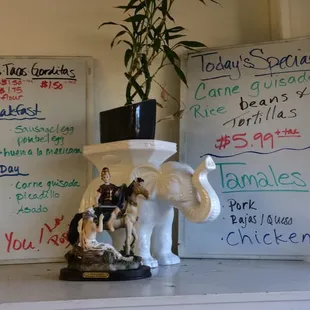 Tacos Gorditas
$1.50
Breakfast
Sausage/egg
ponc/egg
huevo a la mexicana
Day
Carne guisada
picadillo
Asado
You!
Today's Special
Carne guisada
Rice beans &
tortillas
$5.99 + tax
Tamales
Pork
Rajas/Queso
Chicken